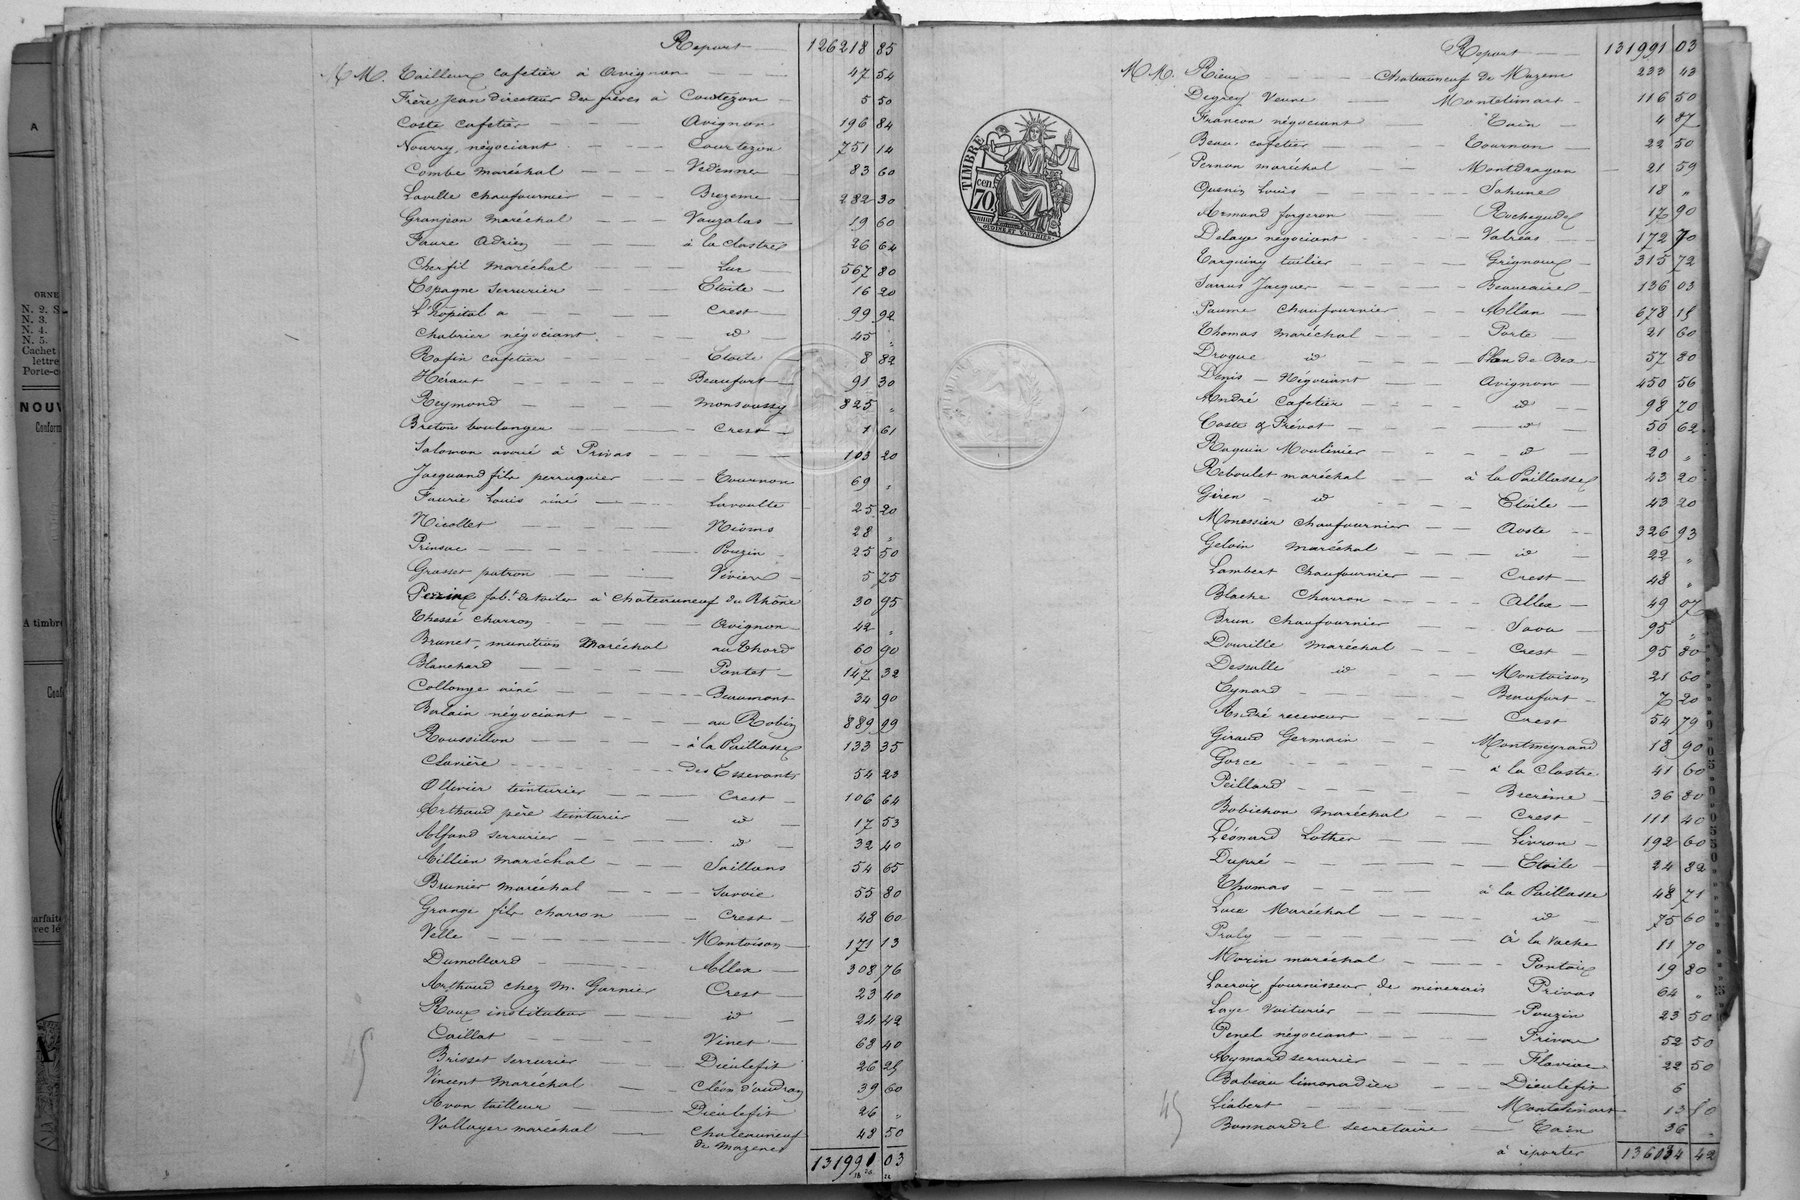 Report 126218 85
M M. Tailleux cafetier à Avignon 47 54
Frère Jean directeur des frères à Courtezon 5 50
Coste cafetier Avignon 196 84
Nourry, négociant Courtezon 751 14
Combe maréchal Vedenne 83 60
Laville chaufournier Brezeme 282 30
Granjon maréchal Vauzalas 19 60
Faure Adrien à la clastre 26 64
Cherfil maréchal Luc 567 80
Espagne serrurier Etoile 16 20
L'hôpital à Crest 99 92
Chabrier négociant id 45 "
Rofin cafetier Etoile 8 82
Héraut Beaufort 91 30
Reymond monsoussy 825 "
Breton boulanger Crest 1 61
Salomon avoué à Privas 103 20
Jacquand fils perruquier Tournon 69 "
Faurie Louis ainé Lavoulte 25 20
Nicollet Nions 28 "
Prinsac Pouzin 25 50
Grasset patron Viviers 5 75
fabt. de toiles à Châteauneuf du Rhône 30 95
Thessé charron Avignon 42 "
Brunet, munition Maréchal au Thord 60 90
Blanchard Pontet 147 32
Collonge ainé Beaumont 34 90
Balain négociant au Robin 889 99
Roussillon à la Paillasse 133 35
Clavière des Esservants 54 23
Ollivier teinturier Crest 106 64
Arthaud père teinturier id 17 53
Alfand serrurier id 32 40
Aillien maréchal Saillans 54 65
Brunier maréchal Savoie 55 80
Grange fils charron Crest 48 60
Velle Montoison 171 13
Dumollard Allex 308 76
Arthaud chez M. Garnier Crest 23 40
Roux instituteur id 24 42
Caillat Vinet 63 40
Brisset serrurier Dieulefit 26 25
Vincent Maréchal Cléon d'andran 39 60
Avon tailleur Dieulefit 26 "
Vallayer maréchal Chateauneuf de Mazenc 48 50
131991 03
Report 131991 03
M M. Rieux Chateauneuf de Mazenc 233 43
Degrey Veuve Montelimart 116 50
Francon négociant Tain 4 87
Beau cafetier Tournon 22 50
Pernon maréchal Montdragon 21 59
Quenin Louis Sahune 18 "
Armand forgeron Rochegude 17 90
Delaye négociant Valréas 172 70
Tarquiny tuilier Grignoux 315 72
Sarrus Jacques Beaucaire 136 03
Paume chaufournier Allan 678 15
Thomas maréchal Porte 21 60
Drogue id Plan de Bex 57 80
Denis Négociant Avignon 450 56
André cafetier id 98 70
Coste & Prevot id 50 62
Raquin Moulinier id 20 "
Reboulet maréchal à la Paillasse 43 20
Géren id Etoile 43 20
Monessier Chaufournier Aoste 326 93
Geloin maréchal id 22 "
Lambert Chaufournier Crest 48 "
Blache Charron Allex 49 07
Brun Chaufournier Sava 95 "
Douville maréchal Crest 95 80
Dessalle id Montoison 21 60
Eynard Beaufort 7 20
André receveur Crest 54 79
Giraud Germain Montmeyrand 18 90
Gorce à la Clastre 41 60
Peillard Brezème 36 80
Bobichon maréchal Crest 111 40
Léonard Lother Livron 192 60
Dupré Etoile 24 82
Thomas à la Paillasse 48 71
Luca Maréchal id 75 60
Praly à la vache 11 70
Morin maréchal Pontaix 19 80
Lacroix fournisseur de minerais Privas 64 "
Laye Voiturier Pouzin 23 50
Penel négociant Privas 52 50
Aymard serrurier Flaviac 22 50
Babeau limonadier Dieulefit 6
Liabert Montelimart 13 50
Bonnardel secretaire Tain 36
à reporter 136034 42
TIMBRE
70 cen
45
45
A
ORNE
N. 2. S
N. 3.
N. 4.
N. 5.
Cachet
lettre
Porte-c
NOUV
Conform
A timbre
Conf
arfaite
vec le